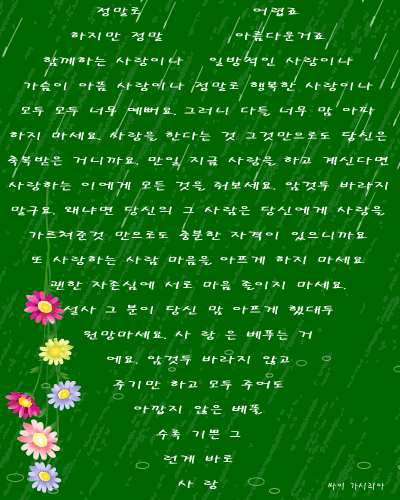 정말로 어렵죠
하지만 정말 아름다운거죠
함께하는 사랑이나 일방적인 사랑이나
가슴이 아픔 사랑이나 정말로 행복한 사랑이나
모두 모두 너무 예뻐요. 그러니 다들 너무 맘 아파
하지 마세요. 사랑을 한다는 것 그것만으로도 당신은
축복받은 거니까요. 만일 지금 사랑을 하고 계신다면
사랑하는 이에게 모든 것을 줘보세요. 암것두 바라지
말구요. 왜냐면 당신의 그 사람은 당신에게 사랑을
가르쳐준것 만으로도 충분한 자격이 있으니까요
또 사랑하는 사람 마음을 아프게 하지 마세요
괜한 자존심에 서로 마음 졸이지 마세요.
설사 그 분이 당신 맘 아프게 했대두
원망마세요. 사 랑 은 베푸는 거
예요. 암것두 바라지 않고
주기만 하고 모두 주어도
아깝지 않은 베풂
수록 기쁜 그
런게 바로
사 랑
싸이 가시리아